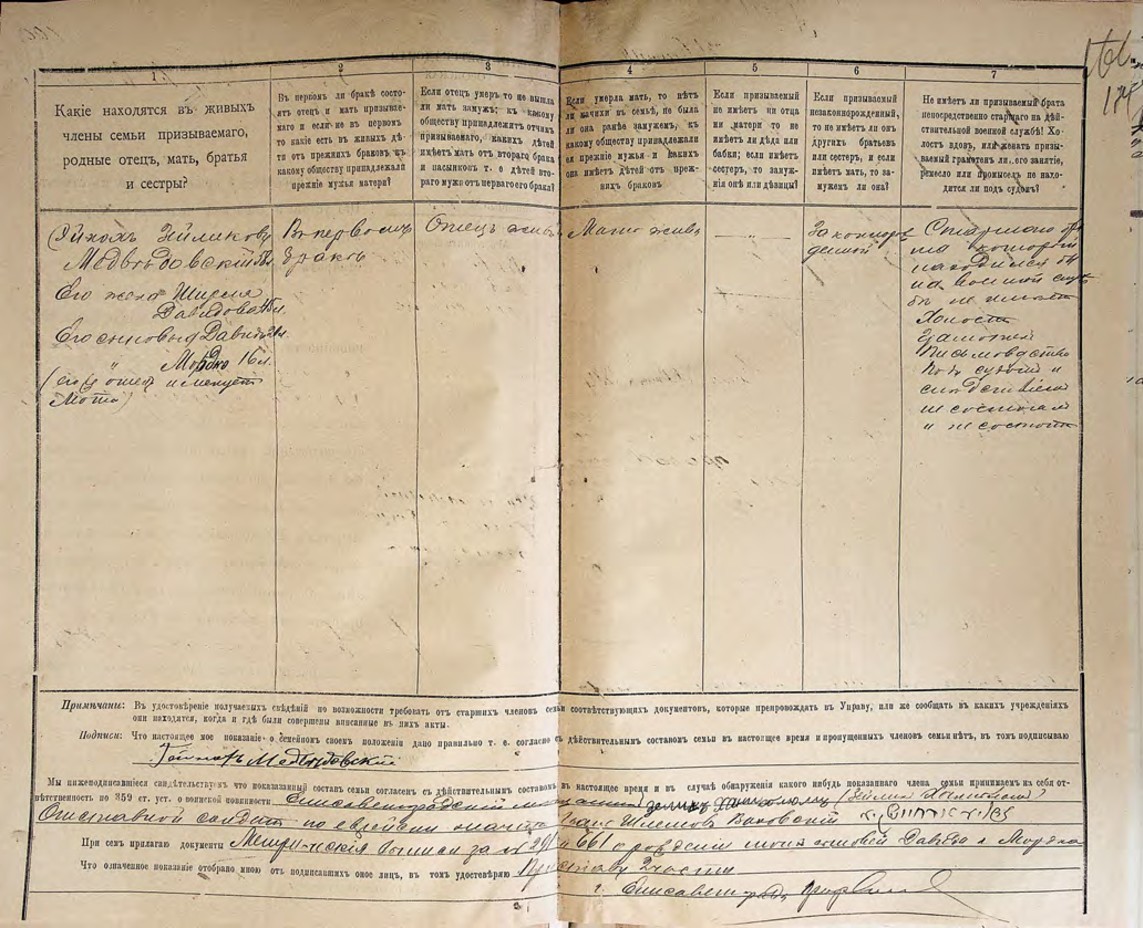 166
1 2 3 4 5 6 7
Какіе находятся въ живыхъ
члены семьи призываемаго,
родные отецъ, мать, братья
и сестры?
Въ первомъ ли бракѣ состо-
ятъ отецъ и мать призывае-
маго и если не въ первомъ
то какіе есть въ живыхъ дѣ-
ти отъ прежнихъ браковъ къ
какому обществу принадлежали
прежніе мужья матери?
Если отецъ умеръ то не вышла
ли мать замужъ; къ какому
обществу принадлежитъ отчимъ
призываемаго, какихъ дѣтей
имѣетъ мать отъ втораго брака
и пасынковъ т. е дѣтей вто-
раго мужа отъ перваго его брака?
Если умерла мать, то нѣтъ
ли мачихи въ семьѣ, не была
ли она ранѣе замужемъ, къ
какому обществу принадлежали
ея прежніе мужья и какихъ
она имѣетъ дѣтей отъ преж-
нихъ браковъ
Если призываемый
не имѣетъ ни отца
ни матери то не
имѣетъ ли дѣда или
бабки; если имѣетъ
сестеръ, то замуж-
ни онѣ или дѣвицы?
Если призываемый
незаконнорожденный,
то не имѣетъ ли онъ
другихъ братьевъ
или сестеръ, и если
имѣетъ мать, то за-
мужемъ ли она?
Не имѣетъ ли призываемый брата
непосредственно старшаго на дѣй-
ствительной военной службѣ! Хо-
лостъ вдовъ, или женатъ призы-
ваемый грамотенъ ли, его занятіе,
ремесло или промыселъ не нахо-
дится ли подъ судомъ?
Медвѣдовскій
Его жена
Давидова 45л.
Его сыновья Давидъ 21л.
" Мордко 16 л.
(его отецъ именуетъ
Мотя)
Въ первомъ
бракѣ
Отецъ живъ
Мать жива
Законнорож
денный
Старшаго бра
на военной служ
бѣ не имѣетъ
Холостъ
Грамотенъ
Письмоводство
Подъ судомъ и
слѣдствіемъ
не состоялъ
и не состоитъ
Примѣчаны: Въ удостовѣреніе получаемыхъ свѣдѣній по возможности требовать отъ старшихъ членовъ семьи соотвѣтствующихъ документовъ, которые препровождать въ Управу, или же сообщать въ какихъ учрежденіяхъ
они находятся, когда и гдѣ были совершены вписанные въ нихъ акты.
Подписи: Что настоящее мое показаніе о семейномъ своемъ положеніи дано правильно т. е. согласно съ дѣйствительнымъ составомъ семьи въ настоящее время и пропущенныхъ членовъ семьи нѣтъ, въ томъ подписываю
Медвѣдовскій
Мы нижеподписавшіеся свидѣтельствуемъ что показанный составъ семьи согласенъ съ дѣйствительнымъ составомъ въ настоящее время и въ случаѣ обнаруженія какого нибудь показаннаго члена семьи принимаемъ на себя от-
вѣтственность по 359 ст. уст. о воинской повинности Елисаветградскій мѣщанинъ
Отставной солдатъ по еврейски
При семъ прилагаю документы Метрическія выписи за № 291 и 661 о рожденіи моихъ сыновей Давида и Мордка
Что означенное показаніе отобрано мною отъ подписавшихъ оное лицъ, въ томъ удостовѣряю Приставъ 2 части
г. Елисаветграда